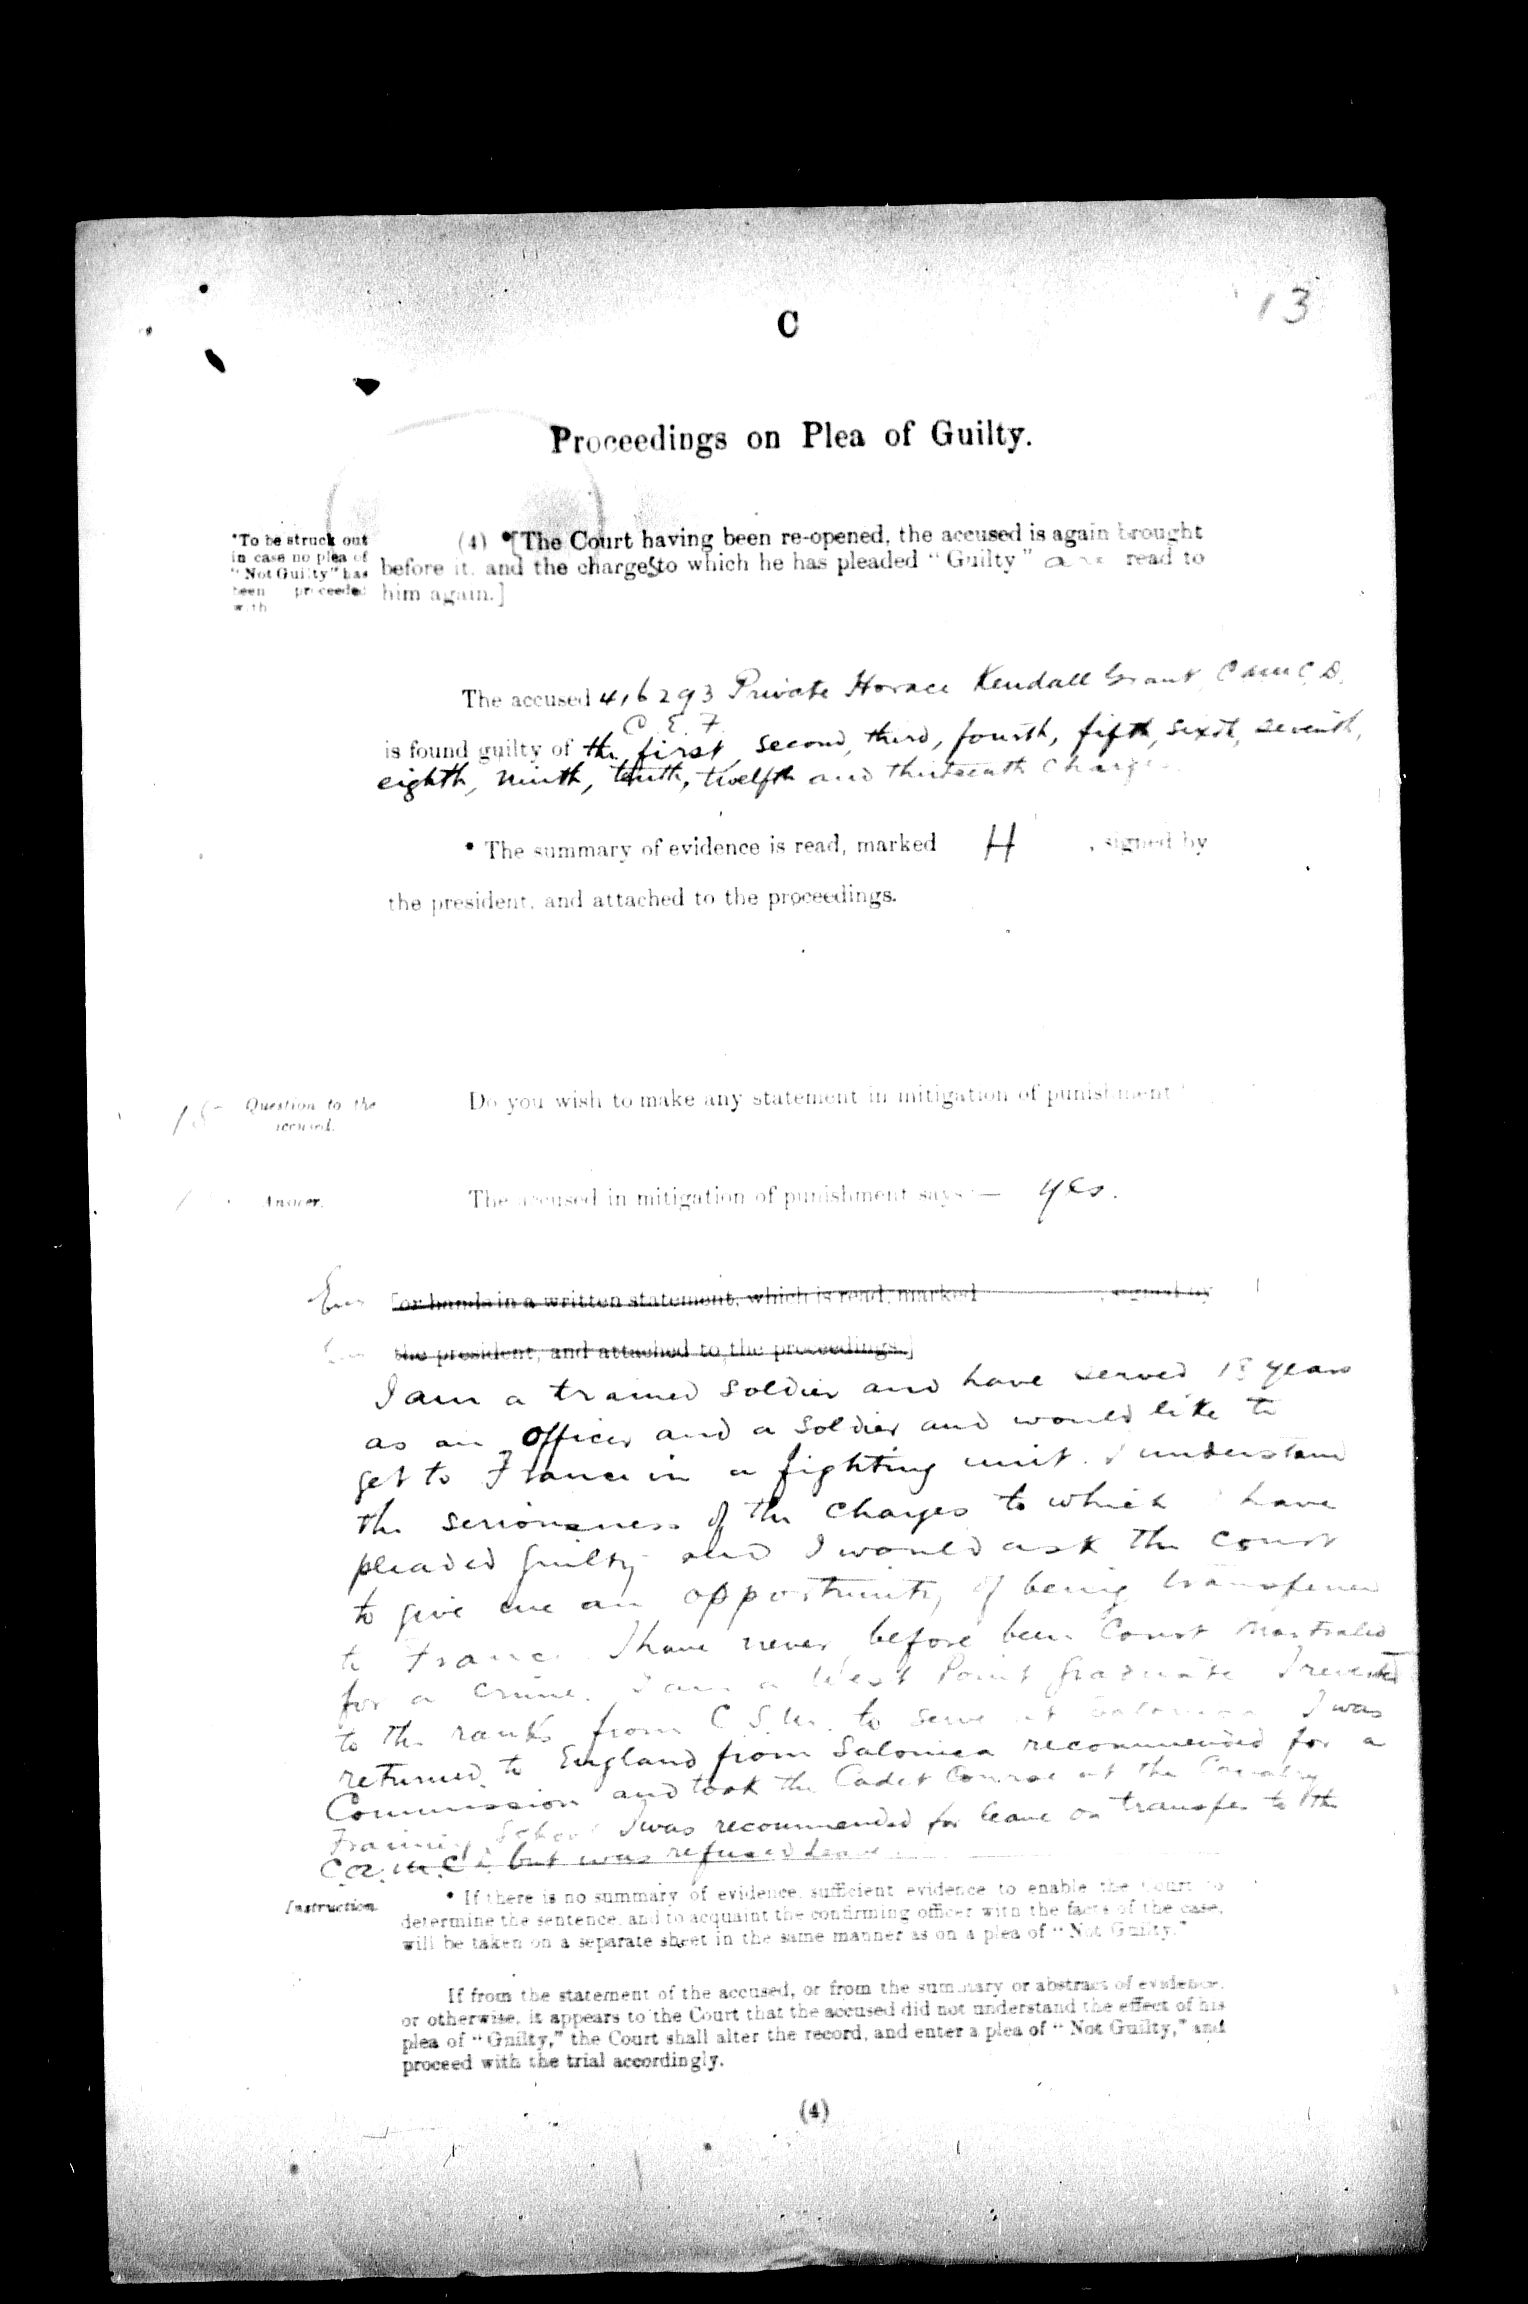 13
C
Proceedings on Plea of Guilty.
*To be struck out
in case no plea of
"Not Guilty" has
been proceeded
with
(4) *[The Court having been re-opened, the accused is again brought
before it, and the charges to which he has pleaded "Guilty" are read to
him again.]
The accused 416293 Private Horace Kendall Grant,
C.E.F.
is found guilty of the first, second, third, fourth, fifth, sixth, seventh,
eighth, ninth, tenth, twelfth and thirteenth charges
* The summary of evidence is read, marked H , signed by
the president, and attached to the proceedings.
Question to the
accused.
Do you wish to make any statement in mitigation of punishment
Answer.
The accused in mitigation of punishment says :— yes.
[or hands in a written statement, which is read, marked , signed by
the president, and attached to the proceedings.]
I am a trained soldier and have served years
as an officer and a soldier and would like to
get to France in a fighting unit. I understand
the seriousness of the charges to which I have
pleaded guilty and I would ask the court
to give me an opportunity of being transferred
to France. I have never before been Court Martialed
for a crime. I am a West Point graduate I reverted
to the ranks from C.S.M. to serve at Salonica I was
returned to England from Salonica recommended for a
Commission and took the Cadet Course at the Cavalry
Training School I was recommended for leave on transfer to the
C.A.M.C. but was refused leave
Instruction.
* If there is no summary of evidence, sufficient evidence to enable the Court to
determine the sentence, and to acquaint the confirming officer with the facts of the case,
will be taken on a separate sheet in the same manner as on a plea of "Not Guilty."
If from the statement of the accused, or from the summary or abstract of evidence,
or otherwise, it appears to the Court that the accused did not understand the effect of his
plea of "Guilty," the Court shall alter the record, and enter a plea of "Not Guilty," and
proceed with the trial accordingly.
(4)